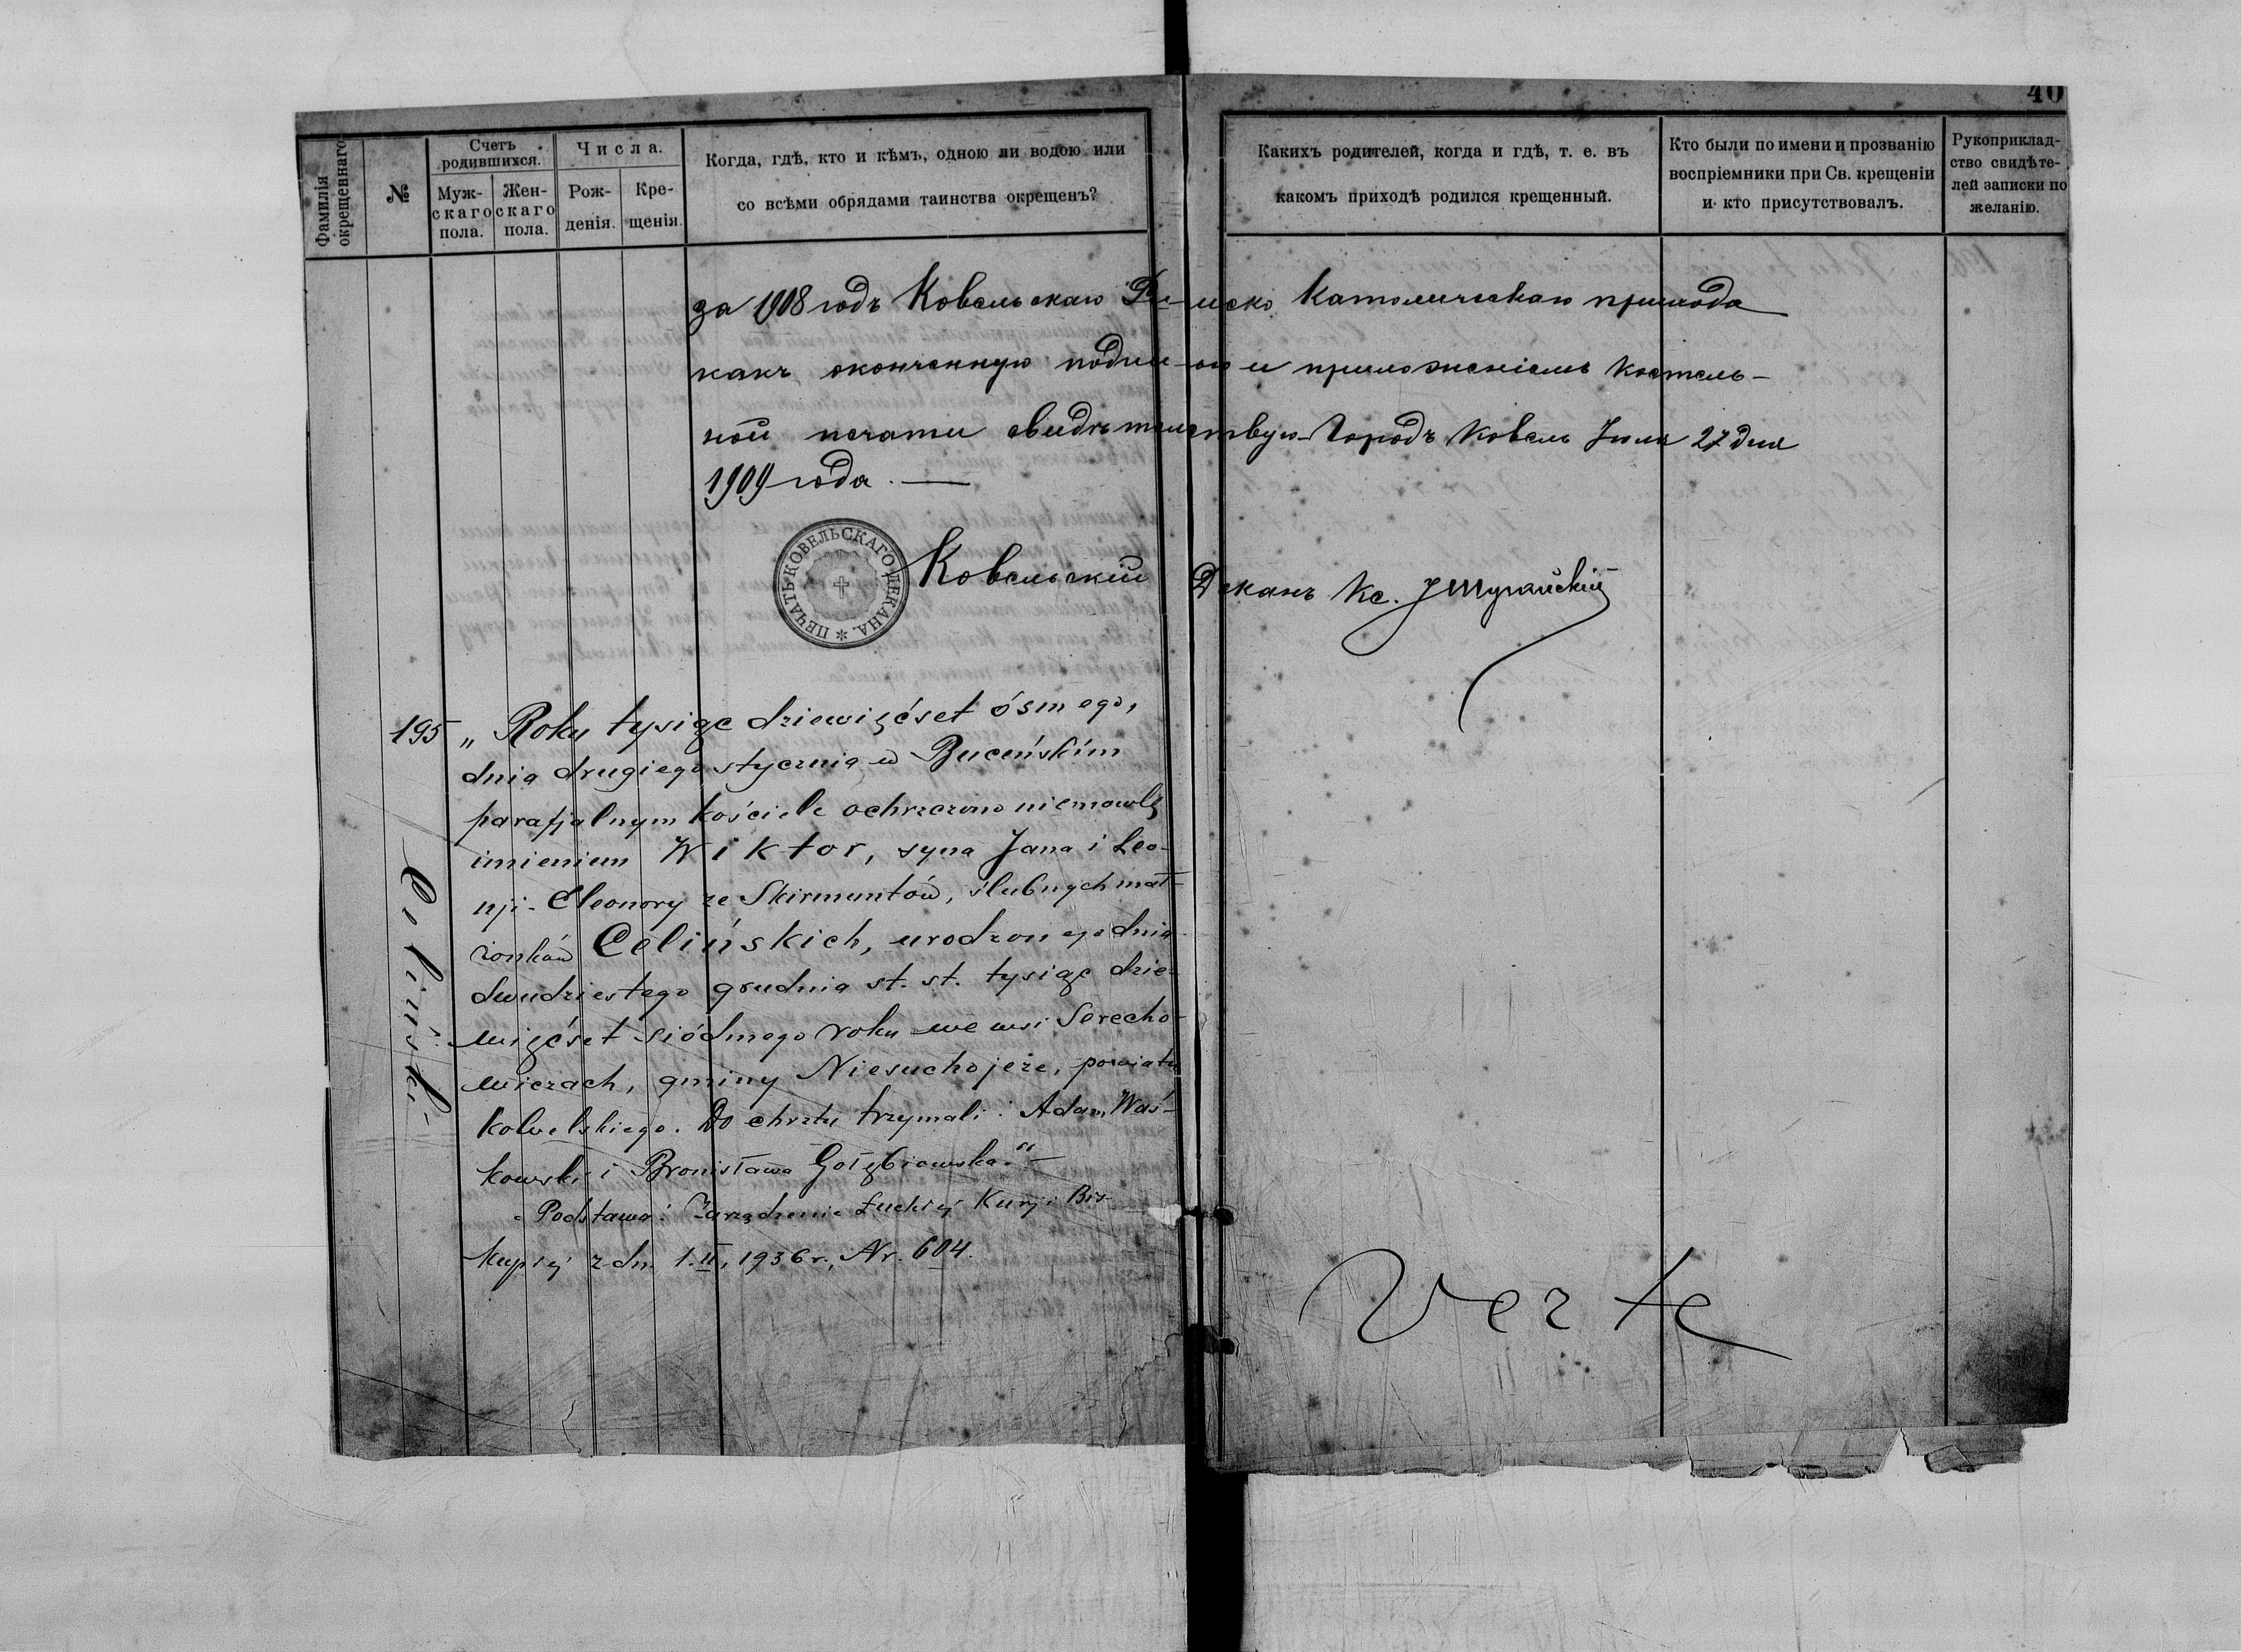 40
Фамилія окрещеннаго
№
Счетъ родившихся.
Муж-
скаго
пола.
Жен-
скаго
пола.
Числа.
Рож-
денія.
Кре-
щенія.
Когда, гдѣ, кто и кѣмъ, одною ли водою или
со всѣми обрядами таинства окрещенъ?
Какихъ родителей, когда и гдѣ, т. е. въ
какомъ приходѣ родился крещенный.
Кто были по имени и прозванію
воспріемники при Св. крещеніи
и кто присутствовалъ.
Рукоприклад-
ство свидѣте-
лей записки по
желанію.
за 1908 годъ Ковельскаго Римско Католическаго прихода
какъ оконченную подписью и приложеніемъ костель-
ной печати свидѣтельствую Городъ Ковель Іюля 27 дня
1909 года. —
ПЕЧАТЬ КОВЕЛЬСКАГО ДЕКАНА.
Ковельскій Деканъ Кс.
195 „Roku tysiąc dziewięćset ósmego,
dnia drugiego stycznia w Buceńskim
parafjalnym kościele ochrzczono niemowlę
imieniem Wiktor, syna Jana i Leo-
nji-Eleonory ze Skirmuntów, ślubnych mał-
żonków Celińskich, urodzonego dnia
dwudziestego grudnia st. st. tysiąc dzie-
więćset siódmego roku we wsi Serecho-
wiczach, gminy Niesuchojeże, powiatu
Kowelskiego. Do chrztu trzymali: Adam Waś-
kowski i Bronisława Gołębiowska." —
Podstawa: Zarządzenie Łuckiej Kurji Bis-
kupiej z dn. 1.II.1936 r., Nr. 604.
Celiński
Verte